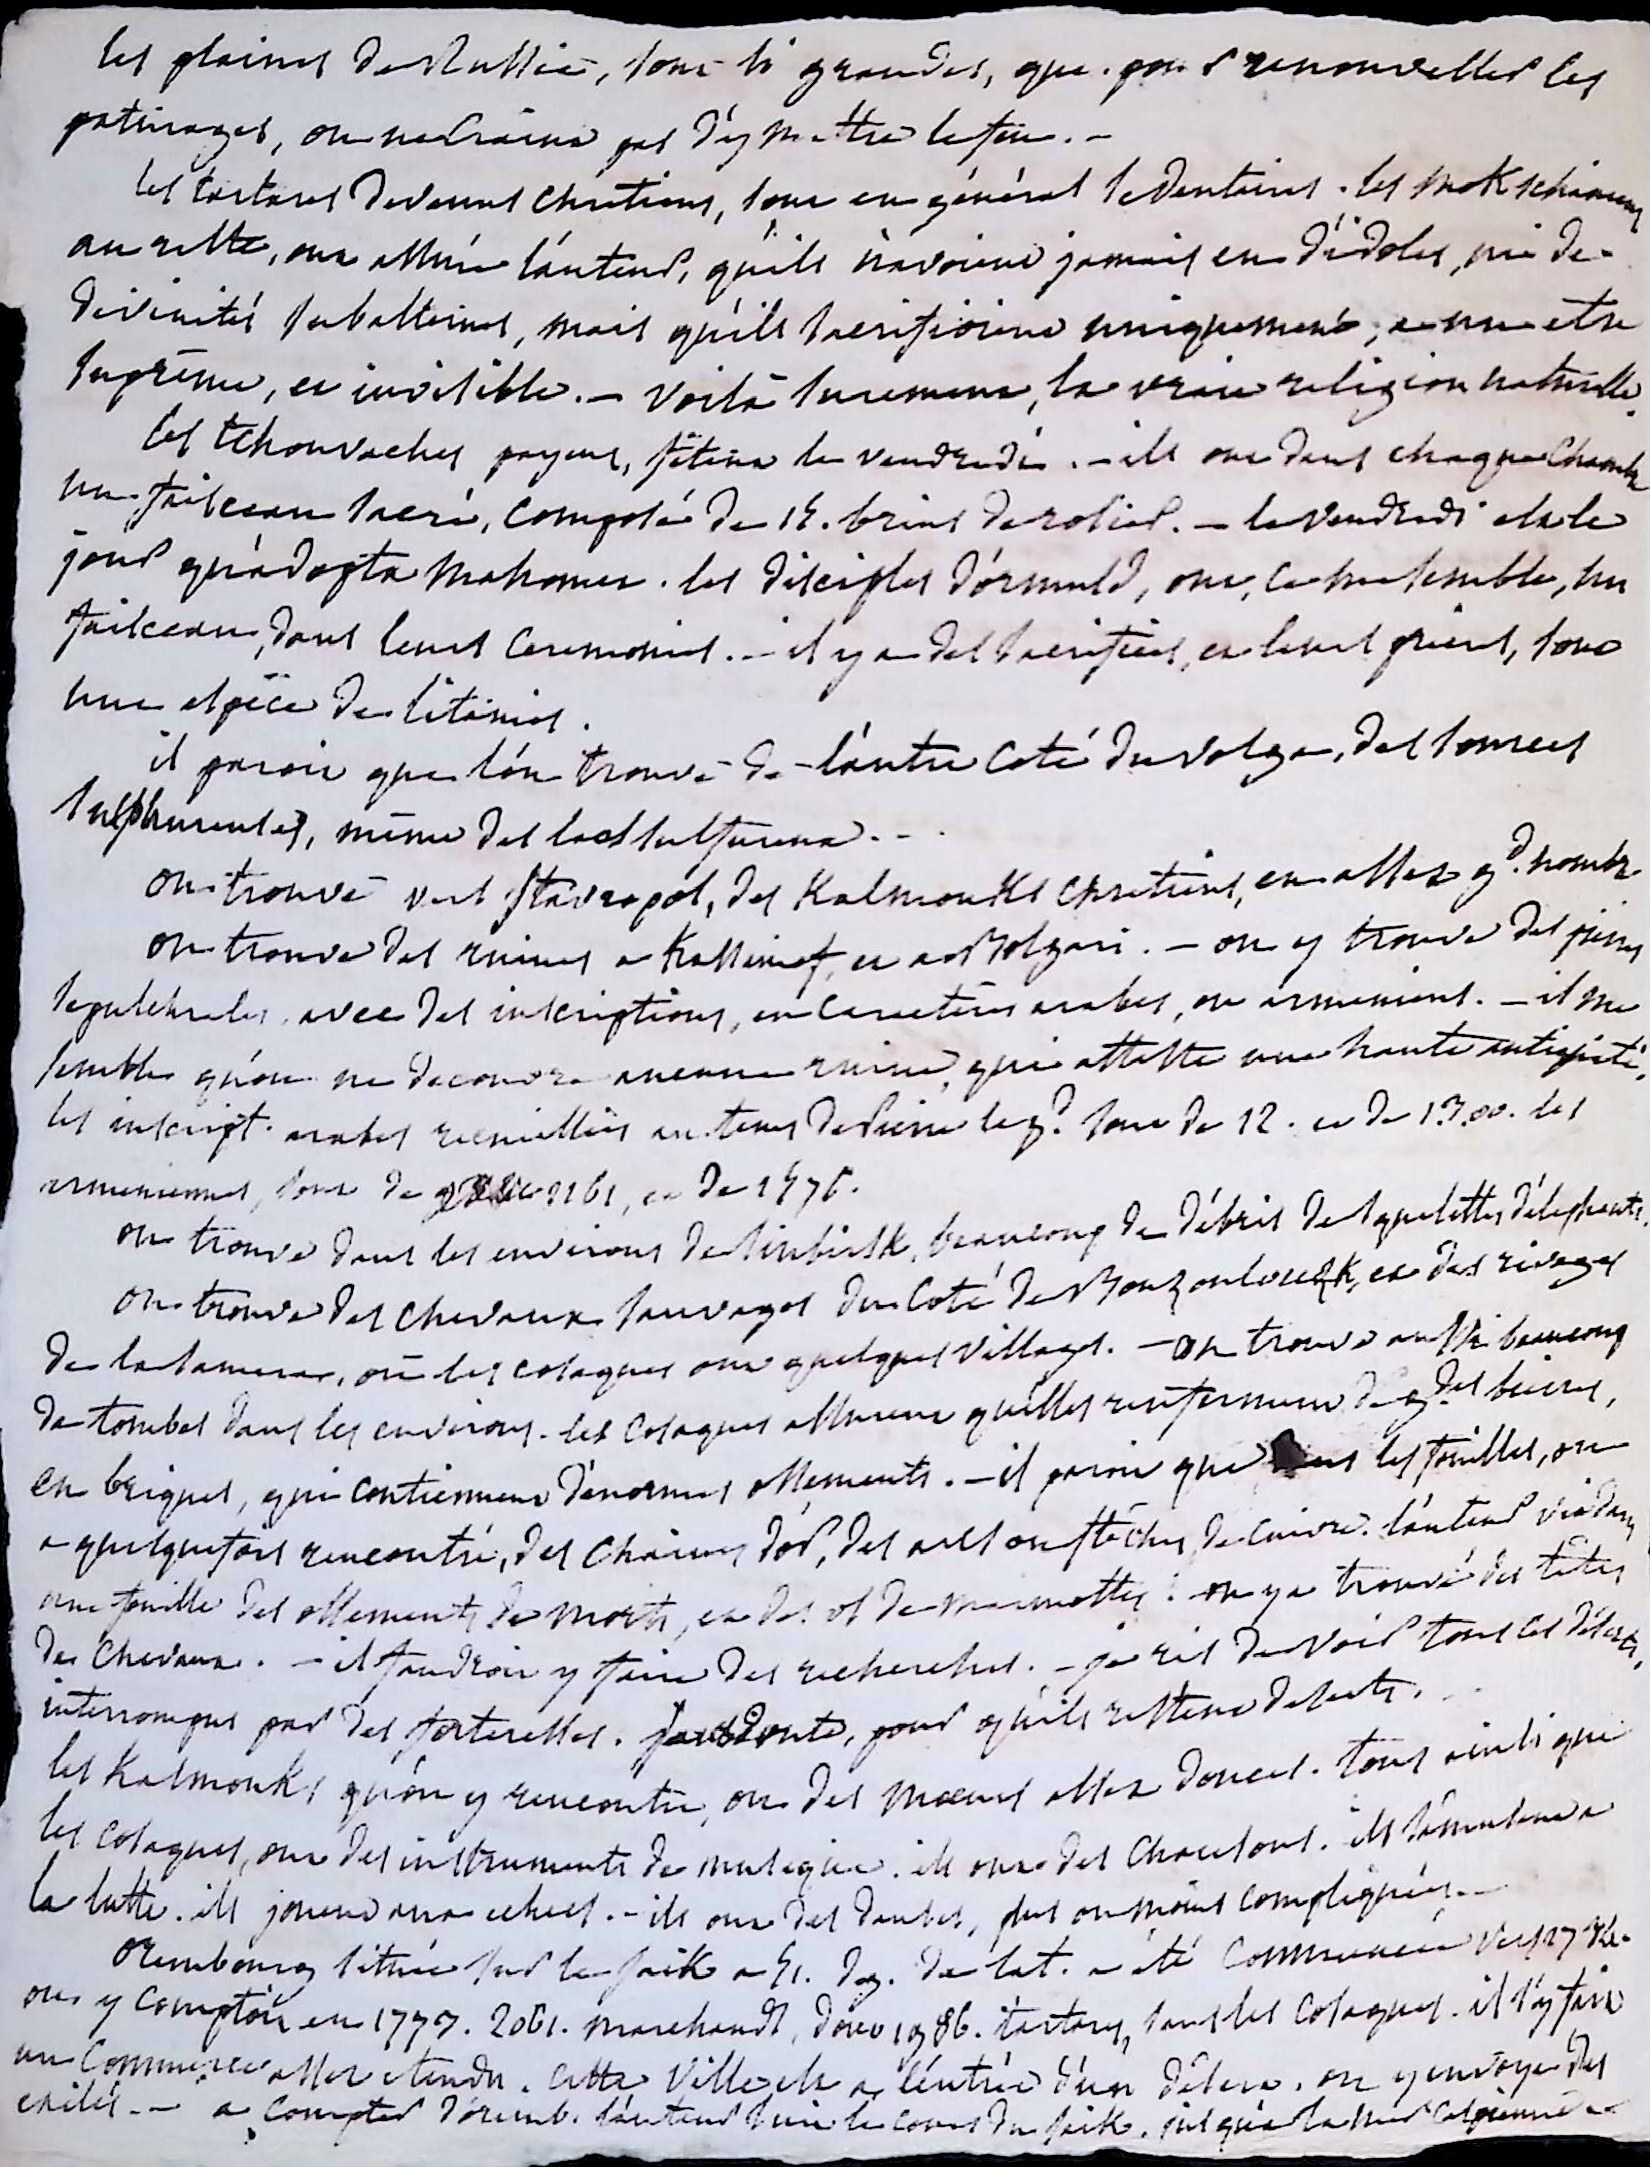 les plaines de Russie, sont si grandes, que pour renouveller les
paturages, on ne craint pas d'y mettre le feu. —
les tartares devenus chrétiens, sont en général sedentaires. les mokschianes
au reste, ont assuré l'auteur, qu'ils n'avoient jamais eu d'idoles, ni de
divinités subalternes, mais qu'ils sacrifioient uniquement, a un etre
suprême, et invisible. — voilà surement, la vraie religion naturelle.
les tchouvaches payens, fêtent le vendredi. — ils ont dans chaque chambre
un faisceau sacré, composé de 15. brins de rosier. — le vendredi est le
jour qu'adopta mahomet. les disciples d'ormusd, ont, ce me semble, un
faisceau, dans leurs ceremonies. — il y a des sacrifices, et leurs prieres, sont
une espèce de litanies.
il paroit que l'on trouve de l'autre coté du volga, des sources
sulphureuses, même des lacs sulfureux. - -
on trouve vers stavropol, des Kalmouks chretiens, en assez gd. nombre
on trouve des ruines a Kassimof, et a Bolgari. — on y trouve des pierres
sepulchrales, avec des inscriptions, en caractères arabes, ou armeniens. — il me
semble qu'on ne decouvre aucune ruine, qui atteste une haute antiquité,
les inscript. arabes recueillies au tems de Pierre le gd. sont de 12. et de 1300. les
armeniennes, sont de 1161, et de 1576.
on trouve dans les environs de sinbirsk, beaucoup de débris de squelettes d'elephants.
on trouve des chevaux sauvages du coté de et des rivages
de la samara, où les cosaques ont quelques villages. — on trouve aussi beaucoup
de tombes dans les environs. les cosaques assurent qu'elles renferment de gdes bieres,
en briques, qui contiennent d'enormes ossements. — il paroit que dans les fouilles, on
a quelquefois rencontré, des chaines d'or, des arcs ou flèches de cuivre. l'auteur vit dans
une fouille des ossements de morts, et des os de marmottes. on y a trouvé des têtes
de chevaux. — il faudroit y faire des recherches. — je ris de voir tous ces déserts,
interrompus par des forteresses. sans doute, pour qu'ils restent deserts. - -
les Kalmouks qu'on y rencontre, ont des mœurs assez douces. tous ainsi que
les cosaques, ont des instruments de musique. ils ont des chansons. ils s'amusent a
la lutte. ils jouent aux echecs. — ils ont des danses, plus ou moins compliquées. —
orembourg située sur le jaik a 51. deg. de lat. a été commencée vers
on y comptoit en 1777. 2061. marchands, dont 1986. tartares, sans les cosaques. il s'y fait
un commerce assez etendu. cette ville est a l'entrée d'un désert. on y envoye des
exilés. — a compter d'oremb. l'auteur suit le cours du jaik. jusqu'a la mer caspienne